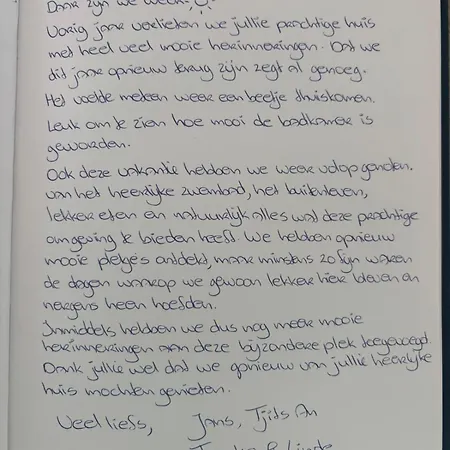 Daar zijn we weer!
Vorig jaar verlieten we jullie prachtige huis
met heel veel mooie herinneringen. Dat we
dit jaar opnieuw terug zijn zegt al genoeg.
Het voelde meteen weer een beetje thuiskomen.
Leuk om te zien hoe mooi de badkamer is
geworden.
Ook deze vakantie hebben we weer volop genoten.
van het heerlijke zwembad, het buitenleven,
lekker eten en natuurlijk alles wat deze prachtige
omgeving te bieden heeft. We hebben opnieuw
mooie plekjes ontdekt, maar minstens zo fijn waren
de dagen waarop we gewoon lekker hier bleven en
nergens heen hoefden.
Inmiddels hebben we dus nog meer mooie
herinneringen aan deze bijzondere plek toegevoegd.
Dank jullie wel dat we opnieuw van jullie heerlijke
huis mochten genieten.
Veel liefs, Jans,